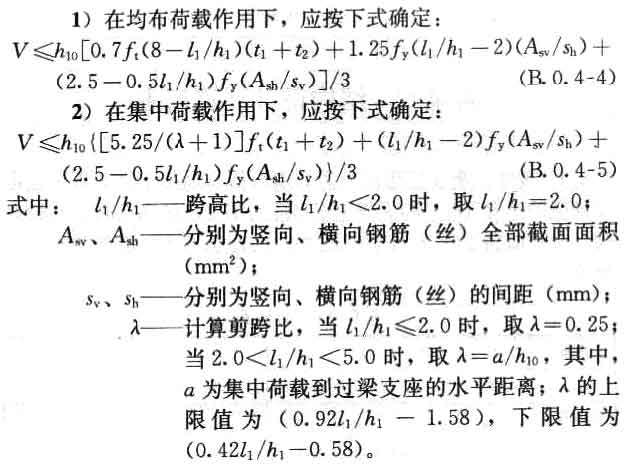 1）在均布荷载作用下，应按下式确定：
V≤h₁₀[0.7fₜ(8−l₁/h₁)(t₁+t₂)+1.25fᵧ(l₁/h₁−2)(Aₛᵥ/sₕ)+
(2.5−0.5l₁/h₁)fᵧ(Aₛₕ/sᵥ)]/3 (B.0.4-4)
2）在集中荷载作用下，应按下式确定：
V≤h₁₀{[5.25/(λ+1)]fₜ(t₁+t₂)+(l₁/h₁−2)fᵧ(Aₛᵥ/sₕ)+
(2.5−0.5l₁/h₁)fᵧ(Aₛₕ/sᵥ)}/3 (B.0.4-5)
式中： l₁/h₁——跨高比，当l₁/h₁<2.0时，取l₁/h₁=2.0；
Aₛᵥ、Aₛₕ——分别为竖向、横向钢筋（丝）全部截面面积
（mm²）；
sᵥ、sₕ——分别为竖向、横向钢筋（丝）的间距（mm）；
λ——计算剪跨比，当l₁/h₁≤2.0时，取λ=0.25；
当2.0<l₁/h₁<5.0时，取λ=a/h₁₀，其中，
a为集中荷载到过梁支座的水平距离；λ的上
限值为（0.92l₁/h₁ − 1.58），下限值为
(0.42l₁/h₁−0.58)。